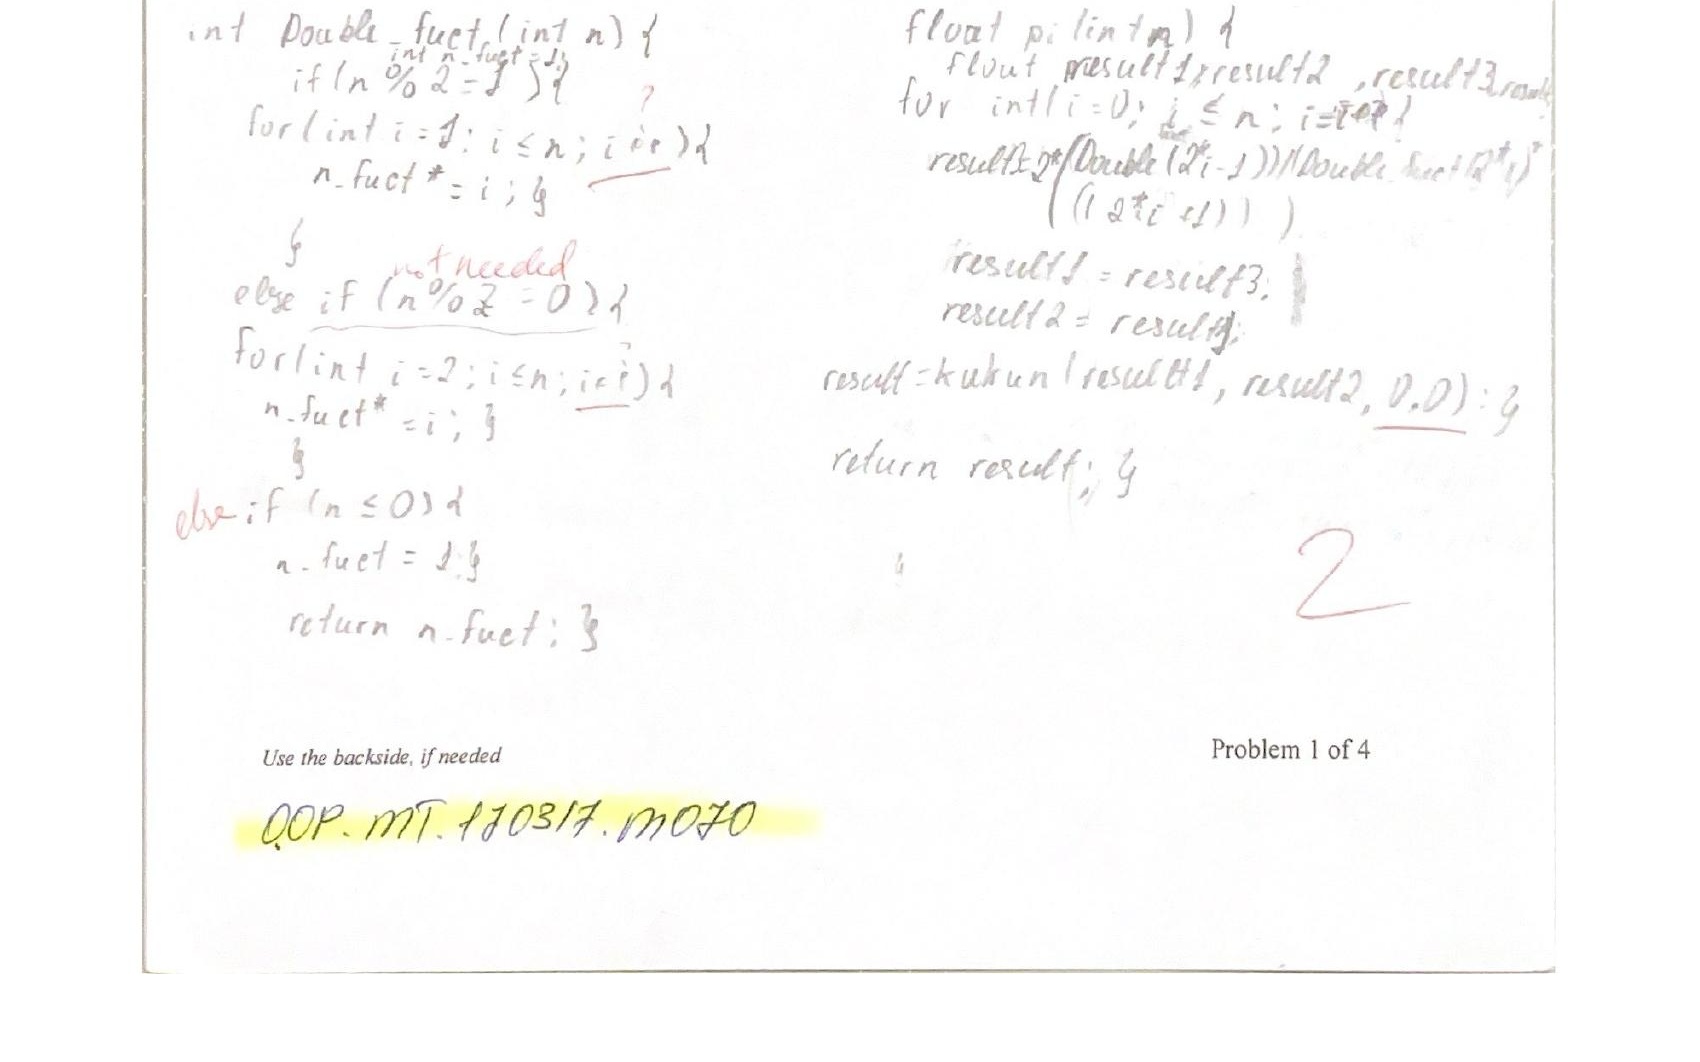 int Double_fuct(int n) {
int n_fuct = 1;
if (n % 2 = 1) {
?
for (int i = 1; i ≤ n; i++) {
n_fuct * = i; }
}
not needed
else if (n % 2 = 0) {
for (int i = 2; i ≤ n; i++) {
n_fuct * = i; }
}
else if (n ≤ 0) {
n_fuct = 1; }
return n_fuct; }
float pi (int n) {
float result1, result2, result3,
for int( i = 0; i ≤ n;
(Double (2*i-1))/(Double fuct(2*i)*
((2*i+1)))
result1 = result3;
result2 =
result = kukun (result1, result2, 0.0); }
return result; }
2
Use the backside, if needed
Problem 1 of 4
OOP. MT. 170317. M070